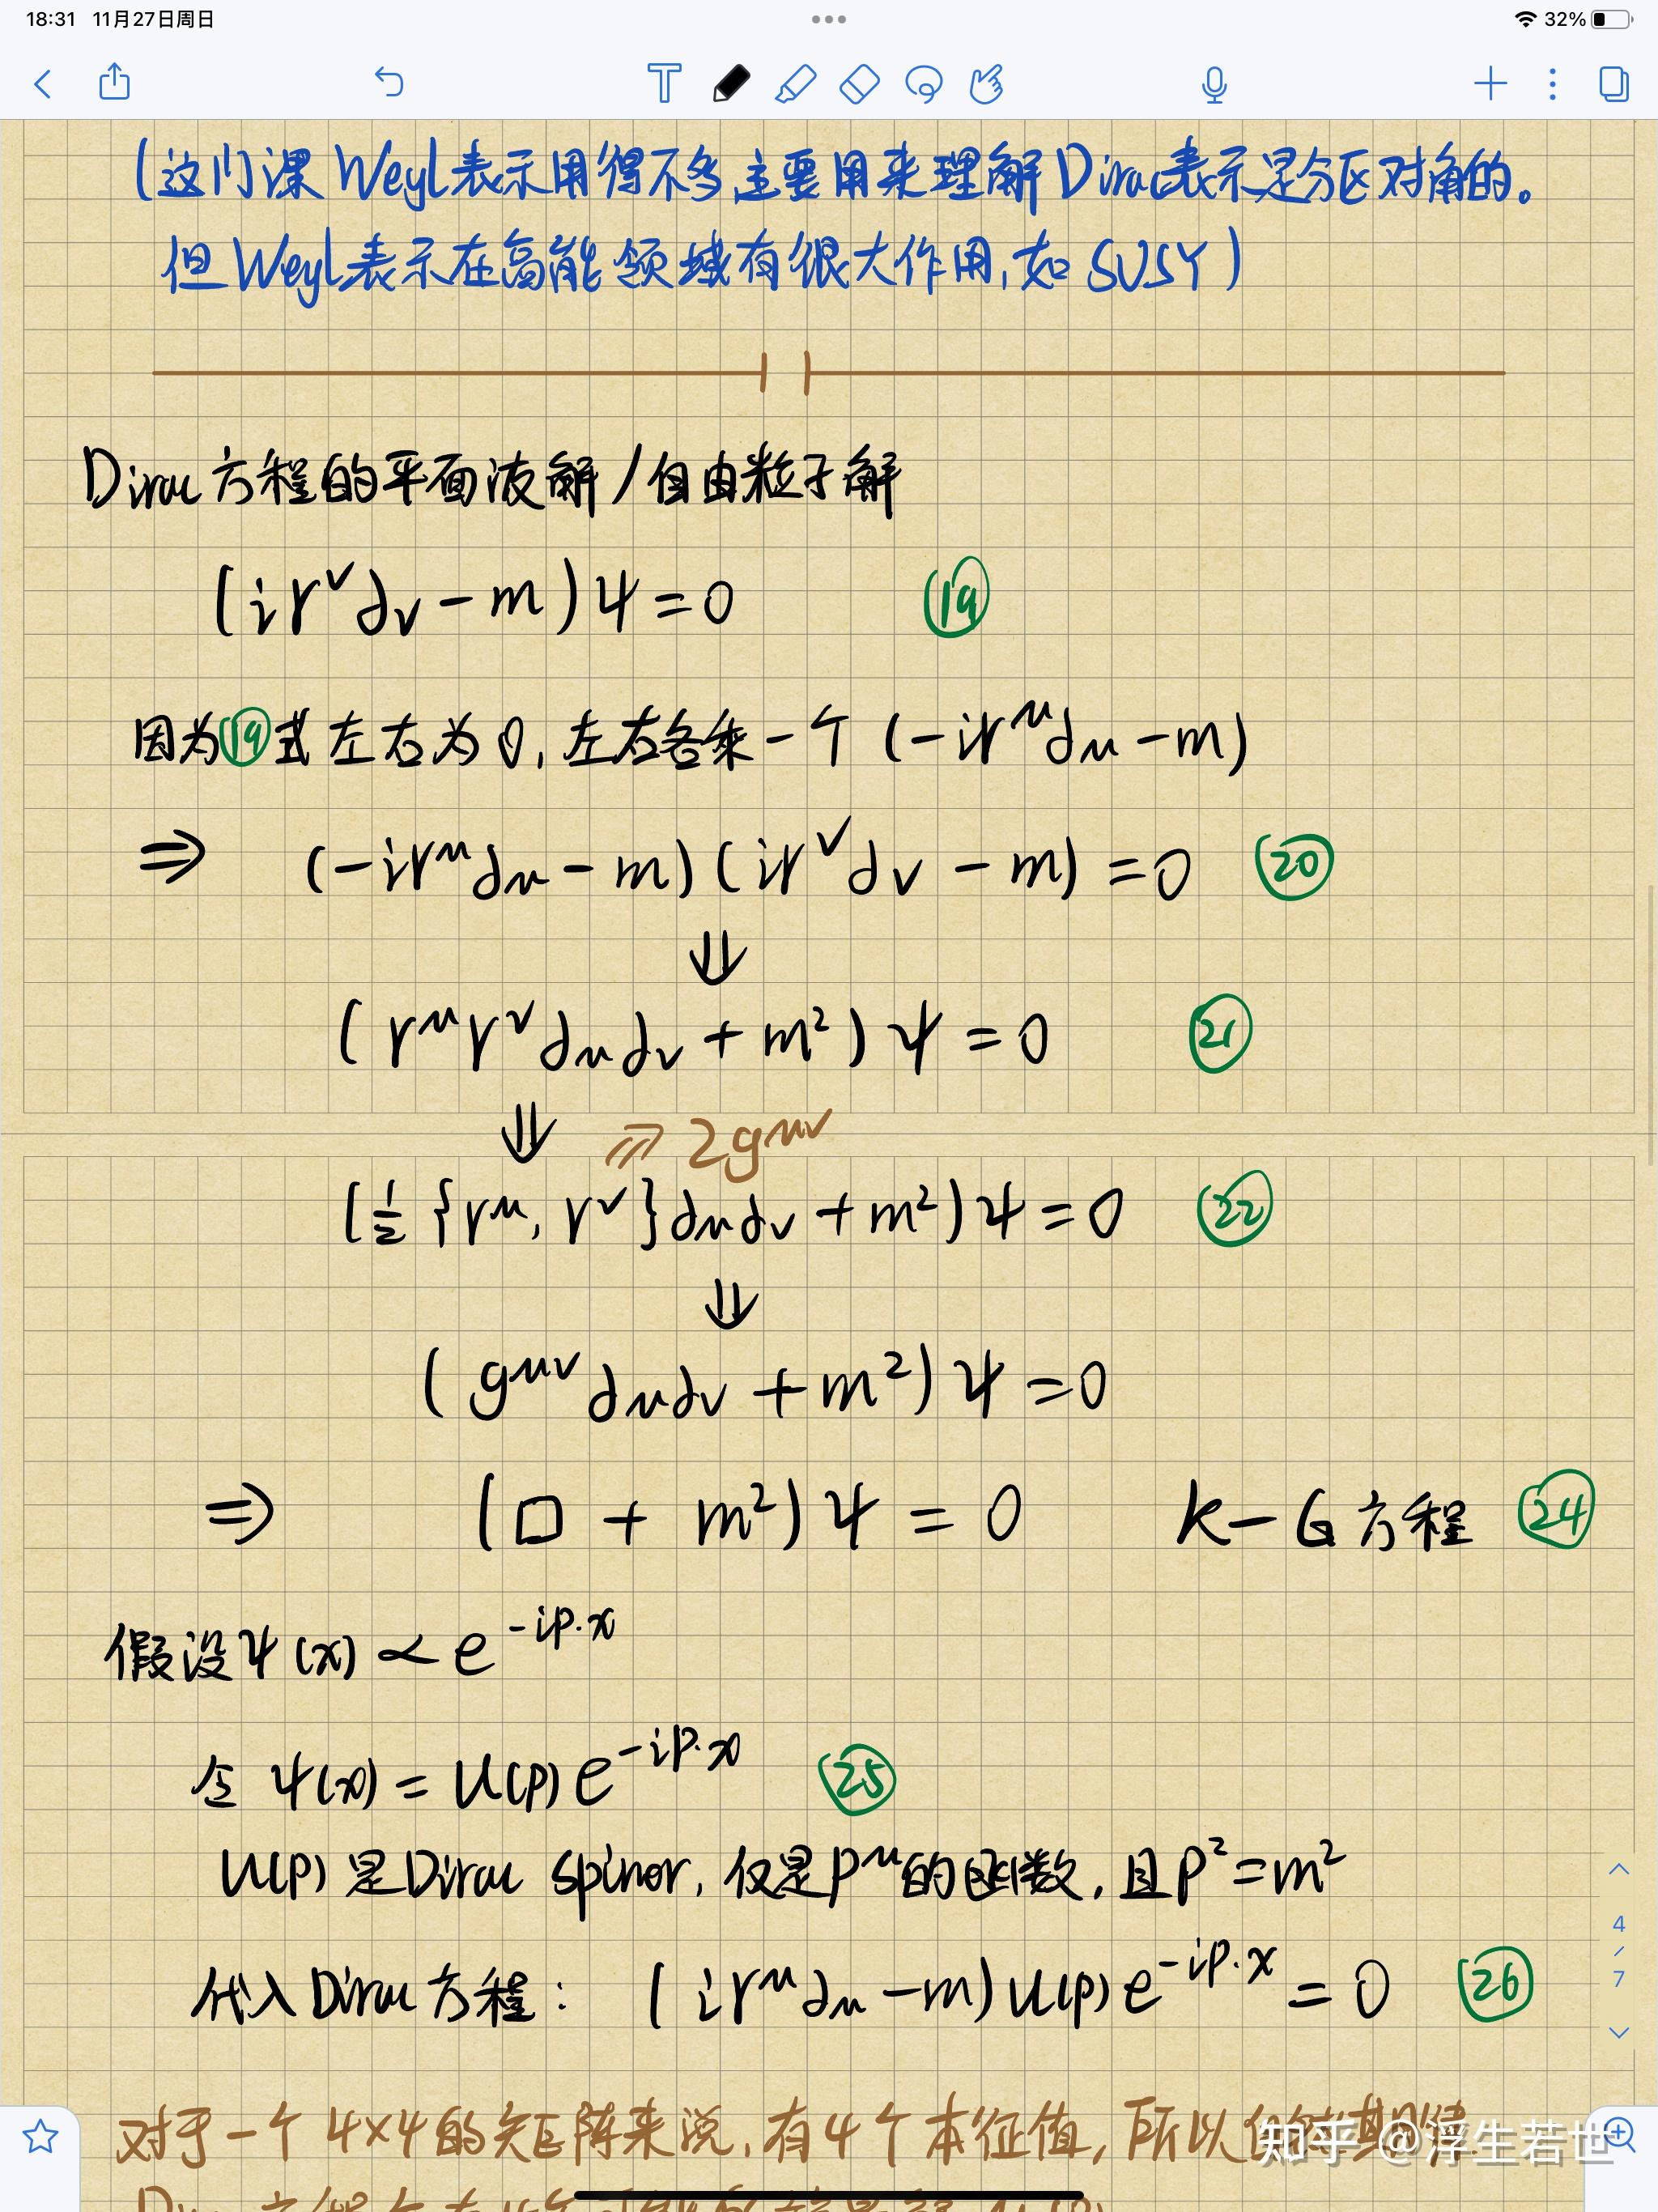 18:31 11月27日周日
32%
(这门课 Weyl表示用得不多,主要用来理解Dirac表示是分区对角的。
但Weyl表示在高能领域有很大作用,如SUSY)
Dirac方程的平面波解/自由粒子解
(iγ^ν∂_ν - m)ψ = 0 ⑲
因为⑲式左右为0,左右各乘一个(-iγ^μ∂_μ - m)
⇒ (-iγ^μ∂_μ - m)(iγ^ν∂_ν - m) = 0 ⑳
⇓
(γ^μγ^ν∂_μ∂_ν + m²)ψ = 0 ㉑
⇓ ⇒ 2g^{μν}
(½{γ^μ, γ^ν}∂_μ∂_ν + m²)ψ = 0 ㉒
⇓
(g^{μν}∂_μ∂_ν + m²)ψ = 0
⇒ (□ + m²)ψ = 0 K-G方程 ㉔
假设ψ(x) ∝ e^{-ip·x}
令 ψ(x) = u(p)e^{-ip·x} ㉕
u(p)是Dirac spinor,仅是p^μ的函数,且p²=m²
代入Dirac方程: (iγ^μ∂_μ - m)u(p)e^{-ip·x} = 0 ㉖
4
/
7
对于一个4×4的矩阵来说,有4个本征值,所以
知乎 @浮生若世